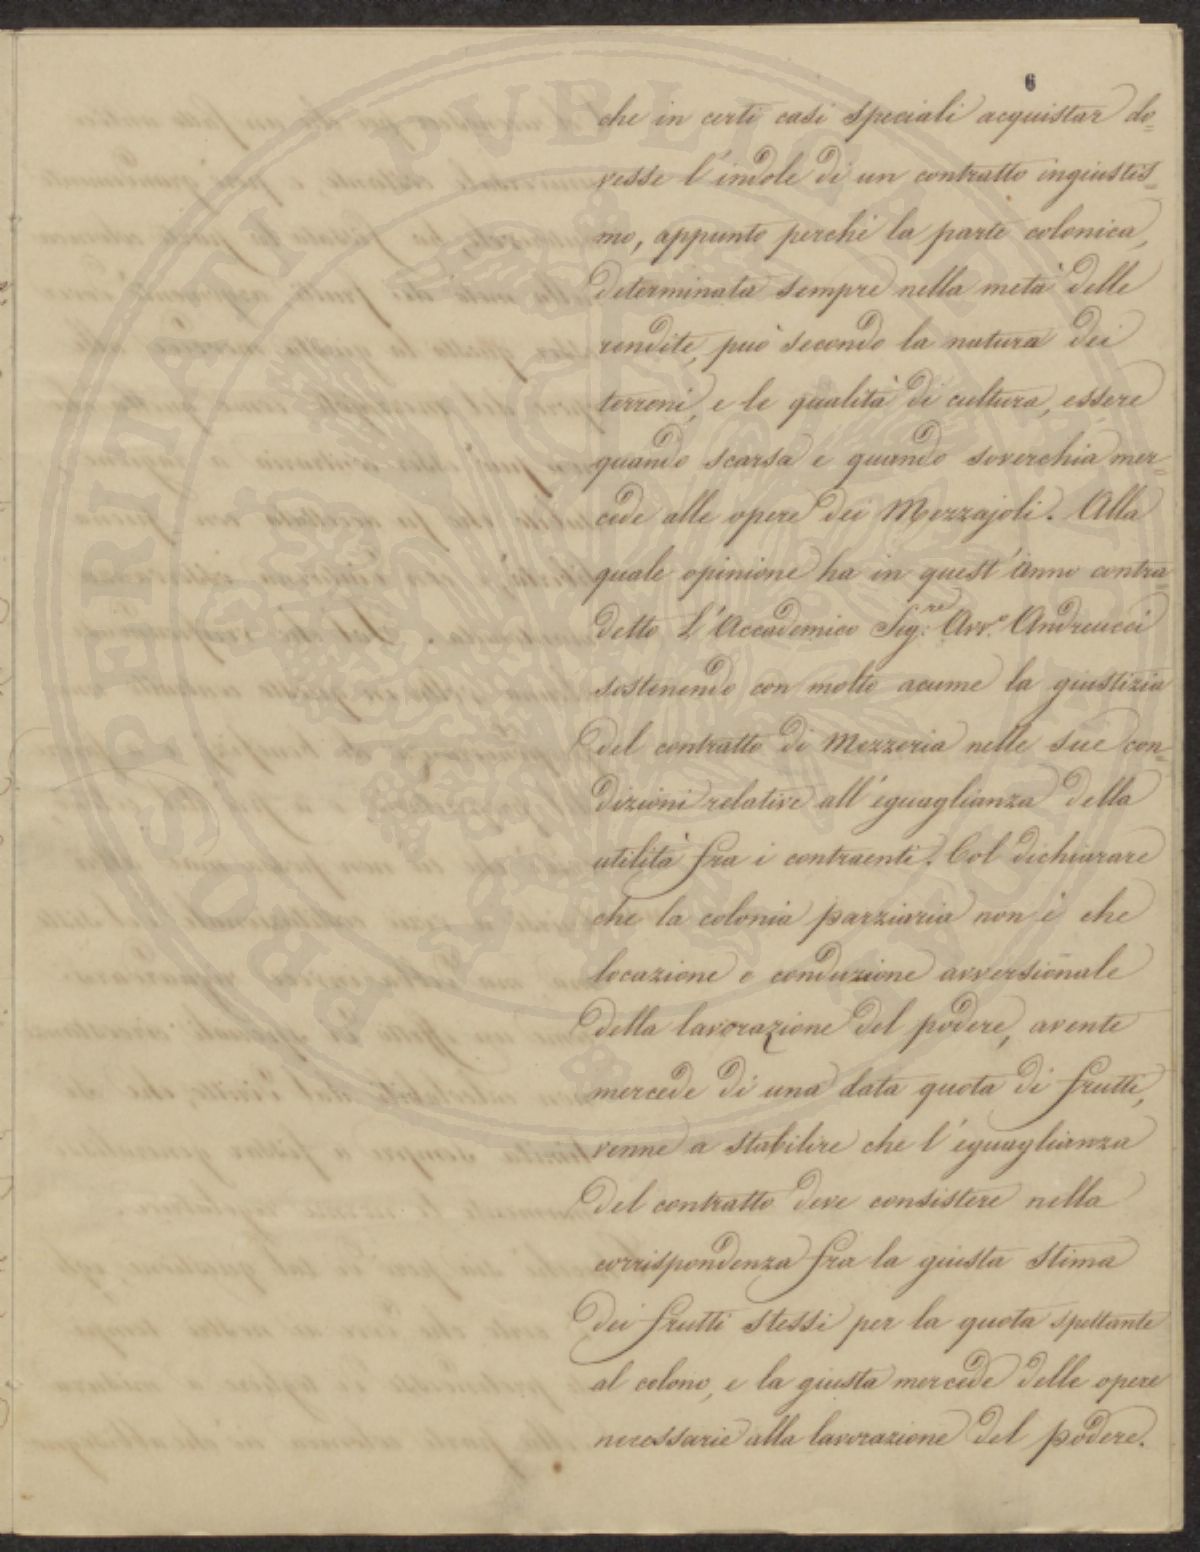 6
che in certi casi speciali acquistar do=
vesse l'indole di un contratto ingiustis=
mo, appunto perchè la parte colonica,
determinata sempre nella metà delle
rendite, può secondo la natura dei
terreni, e le qualità di cultura, essere
quando scarsa e quando soverchia mer=
cede alle opere dei Mezzajoli. Alla
quale opinione ha in quest'anno contra=
detto L'Accademico Sig:re Avv.o Andreucci
sostenendo con molto acume la giustizia
del contratto di Mezzeria nelle sue con=
dizioni relative all'eguaglianza della
utilità fra i contraenti. Col dichiarare
che la colonia parziaria non è che
locazione e conduzione avversionale
della lavorazione del podere, avente
mercede di una data quota di frutti,
venne a stabilire che l'eguaglianza
del contratto deve consistere nella
corrispondenza fra la giusta stima
dei frutti stessi per la quota spettante
al colono, e la giusta mercede delle opere
necessarie alla lavorazione del podere.